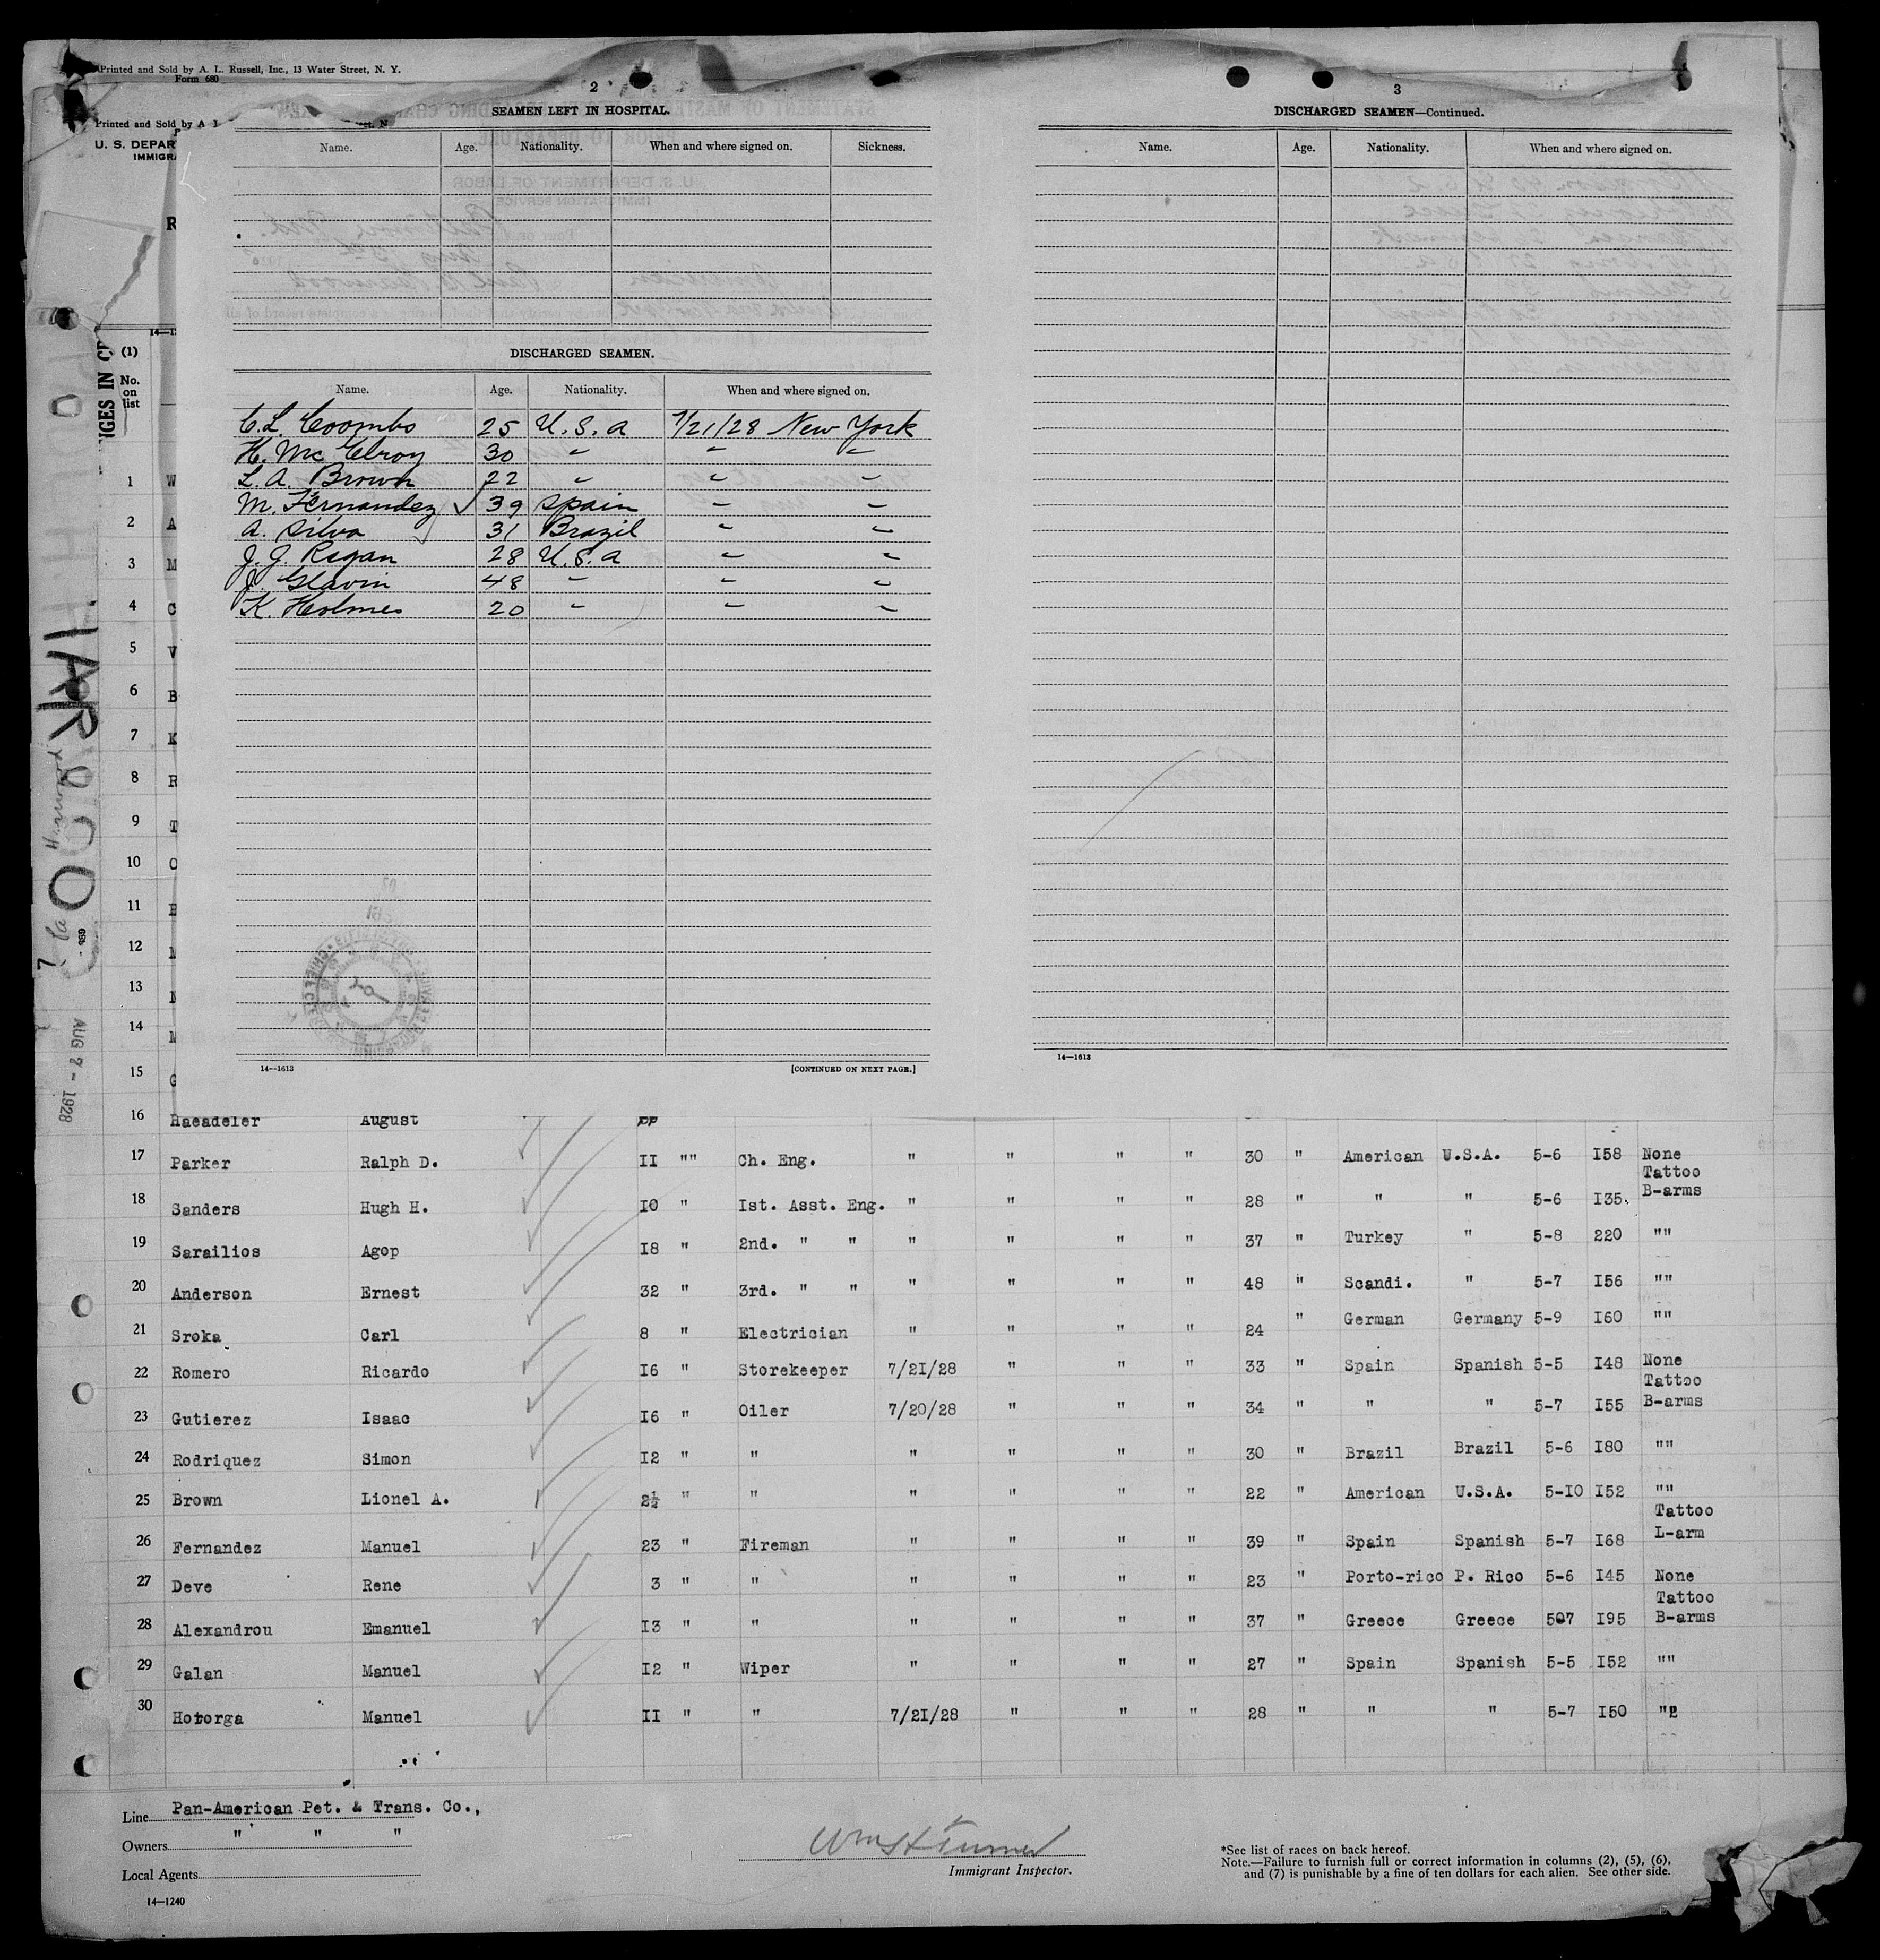 Printed and Sold by A. L. Russell, Inc., 13 Water Street, N. Y.
Form 680
Printed and Sold by A L
U. S. DEPAR
IMMIGRA
2
SEAMEN LEFT IN HOSPITAL.
Name. Age. Nationality. When and where signed on. Sickness.
DISCHARGED SEAMEN.
Name. Age. Nationality. When and where signed on.
C. L. Coombs 25 U. S. a 7/21/28 New York
H. Mc Elroy 30 " " "
L. A. Brown 22 " " "
M. Fernandez ✓ 39 Spain " "
A. Silva 31 Brazil " "
J. J. Regan 28 U. S. a " "
J. Glavin 48 " " "
K. Holmes 20 " " "
14—1613 [CONTINUED ON NEXT PAGE.]
3
DISCHARGED SEAMEN—Continued.
Name. Age. Nationality. When and where signed on.
14—1613
(1)
No. on list
1 W
2 A
3 M
4 C
5 V
6 B
7 K
8 R
9 T
10 O
11
12
13
14 M
15 G
AUG 7 - 1928
16 Haeadeler August
17 Parker Ralph D. II "" Ch. Eng. " " " " 30 " American U.S.A. 5-6 I58 None
18 Sanders Hugh H. I0 " Ist. Asst. Eng. " " " " 28 " " " 5-6 I35. Tattoo B-arms
19 Sarailios Agop I8 " 2nd. " " " " " " 37 " Turkey " 5-8 220 ""
20 Anderson Ernest 32 " 3rd. " " " " " " 48 " Scandi. " 5-7 I56 ""
21 Sroka Carl 8 " Electrician " " " " 24 " German Germany 5-9 I60 ""
22 Romero Ricardo I6 " Storekeeper 7/2I/28 " " " 33 " Spain Spanish 5-5 I48 None
23 Gutierez Isaac I6 " Oiler 7/20/28 " " " 34 " " " 5-7 I55 Tattoo B-arms
24 Rodriquez Simon I2 " " " " " " 30 " Brazil Brazil 5-6 I80 ""
25 Brown Lionel A. 2½ " " " " " " 22 " American U.S.A. 5-I0 I52 ""
26 Fernandez Manuel 23 " Fireman " " " " 39 " Spain Spanish 5-7 I68 Tattoo L-arm
27 Deve Rene 3 " " " " " " 23 " Porto-rico P. Rico 5-6 I45 None
28 Alexandrou Emanuel I3 " " " " " " 37 " Greece Greece 507 I95 Tattoo B-arms
29 Galan Manuel I2 " Wiper " " " " 27 " Spain Spanish 5-5 I52 ""
30 Hotorga Manuel II " " 7/2I/28 " " " 28 " " " 5-7 I50 "2
Line Pan-American Pet. & Trans. Co.,
Owners " " "
Local Agents
14—1240
Wm H Turner
Immigrant Inspector.
*See list of races on back hereof.
Note.—Failure to furnish full or correct information in columns (2), (5), (6),
and (7) is punishable by a fine of ten dollars for each alien. See other side.